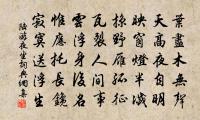 葉盡木無聲
天高夜自明
映窗燈半滅
掠野雁孤征
瓦裂人間事
雲浮身後名
惟應托長鑱
寂寞送浮生
陸游夜坐詞典網集